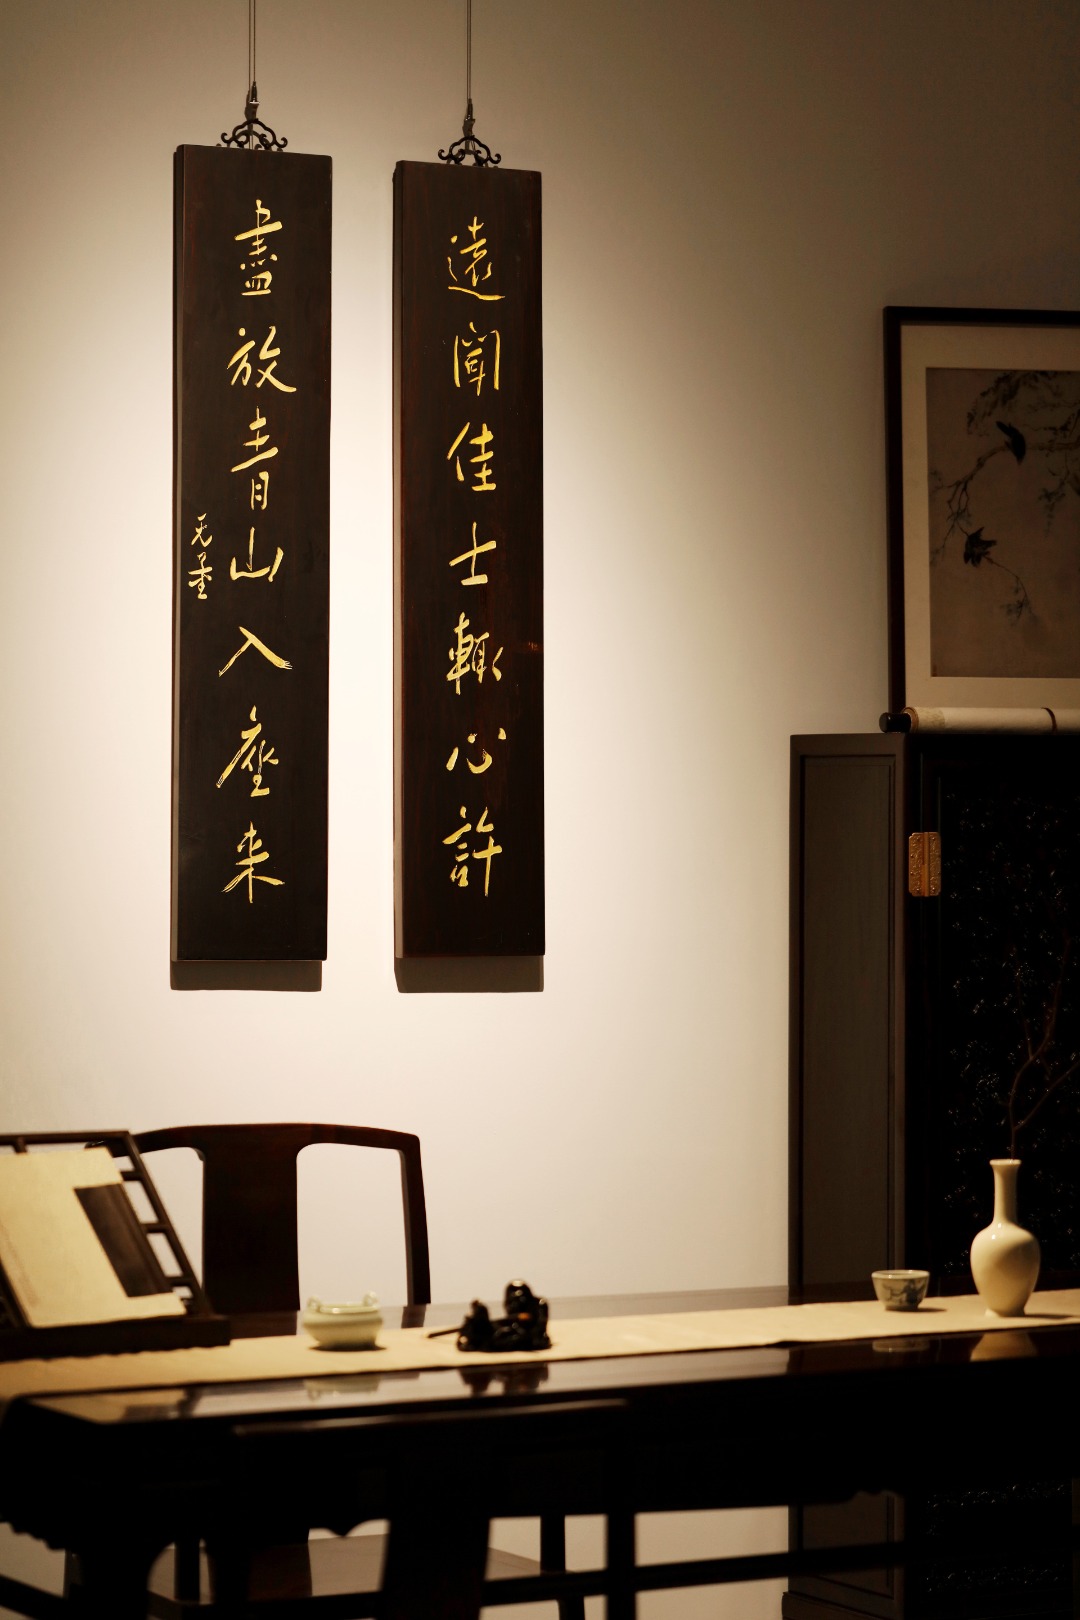 遠聞佳士輙心許
盡放青山入座来
无量